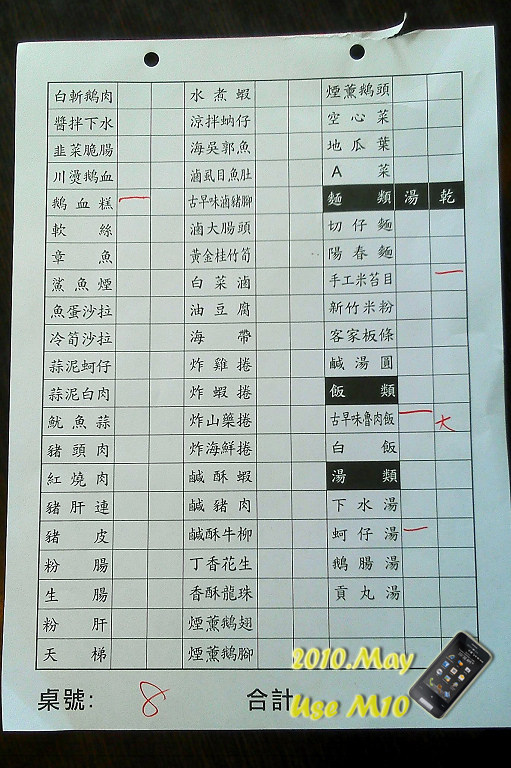 白斬鵝肉
醬拌下水
韭菜脆腸
川燙鵝血
鵝血糕 一
軟絲
章魚
鯊魚煙
魚蛋沙拉
冷筍沙拉
蒜泥蚵仔
蒜泥白肉
魷魚蒜
豬頭肉
紅燒肉
豬肝連
豬皮
粉腸
生腸
粉肝
天梯
水煮蝦
涼拌蚋仔
海吳郭魚
滷虱目魚肚
古早味滷豬腳
滷大腸頭
黃金桂竹筍
白菜滷
油豆腐
海帶
炸雞捲
炸蝦捲
炸山藥捲
炸海鮮捲
鹹酥蝦
鹹豬肉
鹹酥牛柳
丁香花生
香酥龍珠
煙薰鵝翅
煙薰鵝腳
煙薰鵝頭
空心菜
地瓜葉
A菜
麵類 湯 乾
切仔麵
陽春麵
手工米苔目 一
新竹米粉
客家板條
鹹湯圓
飯類
古早味魯肉飯 一 大
白飯
湯類
下水湯
蚵仔湯 一
鵝腸湯
貢丸湯
桌號: 8 合計
2010.May
Use M10